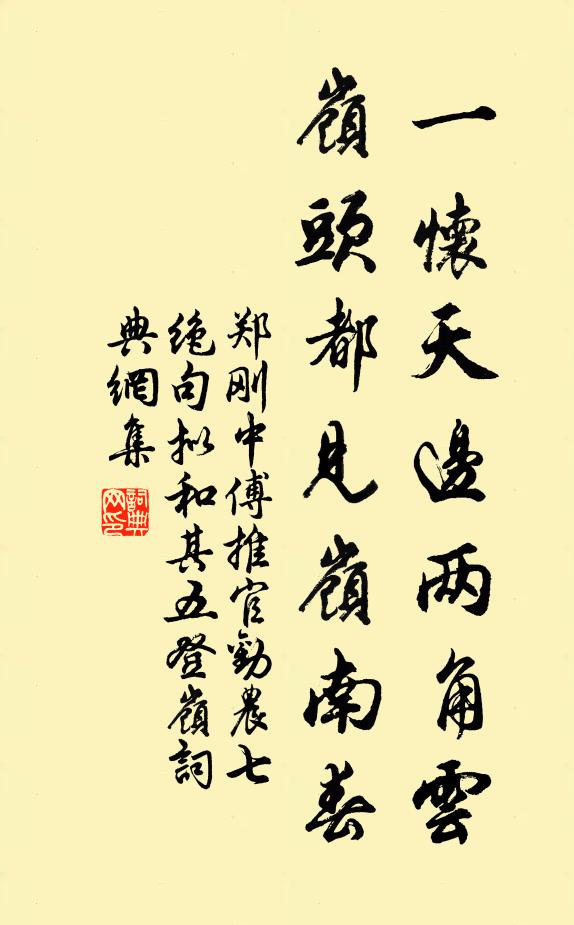 一懷天邊两角雲
嶺頭都見嶺南春
郑刚中傅推官勸農七
绝句拟和其五登嶺詞
典網集
詞典
网印